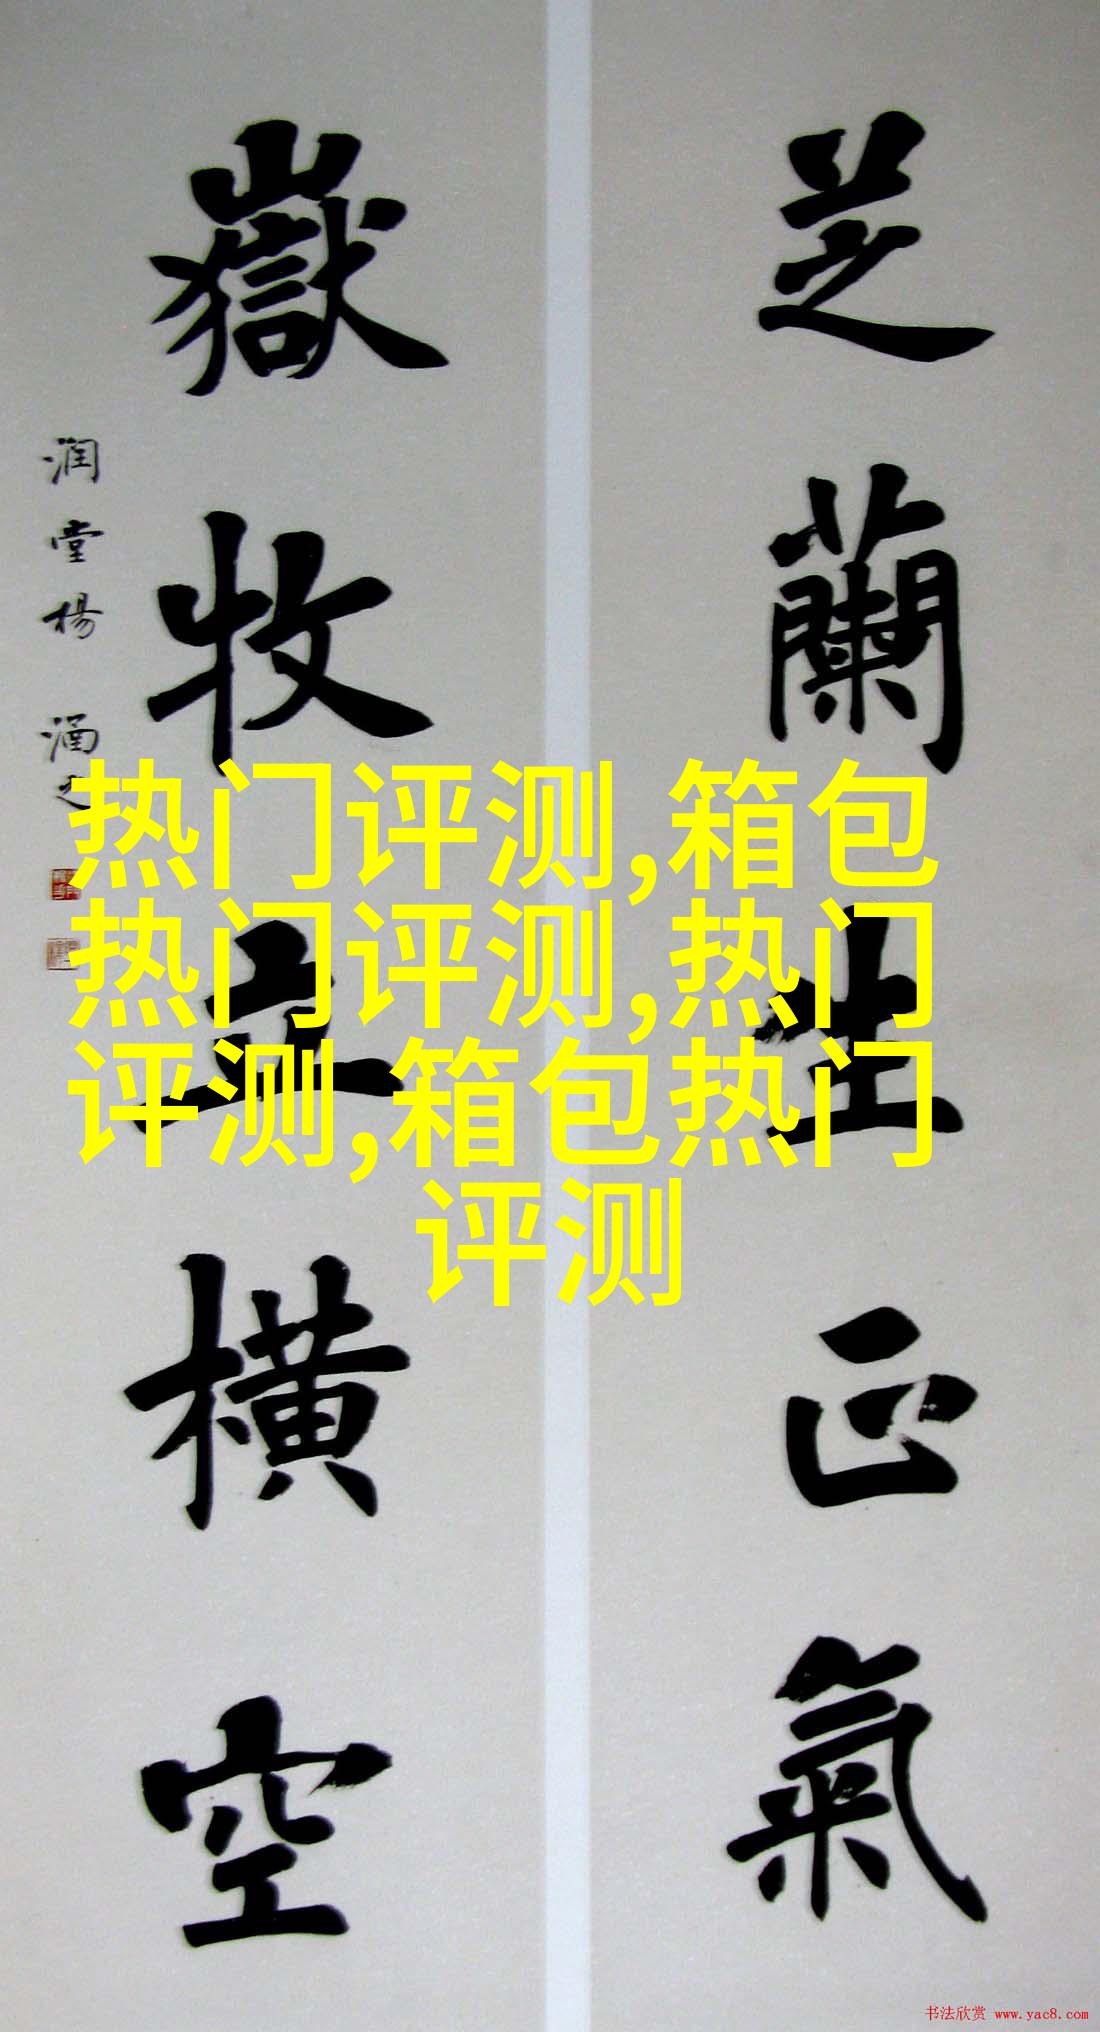 芝蘭生正氣
嶽牧立橫空
润堂楊涌之
热门评测,箱包
热门评测,热门
评测,箱包热门
评测
书法欣赏 www.yac8.com